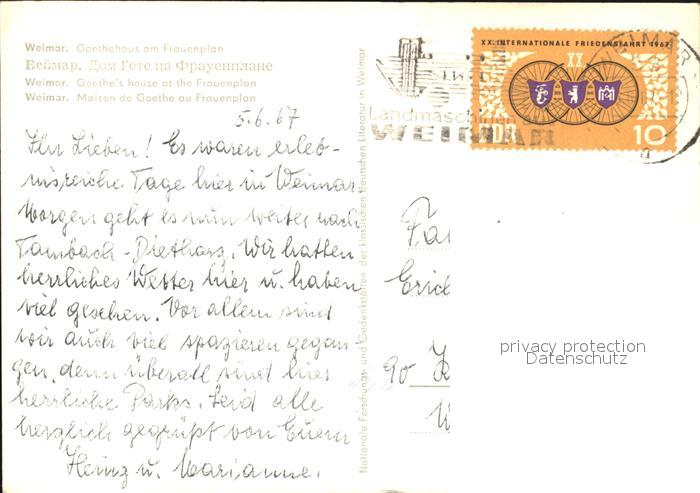 Weimar. Goethehaus am Frauenplan
Веймар. Дом Гете на Фрауенплане
Weimar. Goethe's house at the Frauenplan
Weimar. Maison de Goethe au Frauenplan
5.6.67
Ihr Lieben! Es waren erleb-
nisreiche Tage hier in Weimar
Morgen geht es nun weiter nach
Tambach-Dietharz. Wir hatten
herrliches Wetter hier u. haben
viel gesehen. Vor allem sind
wir auch viel spazieren gegan-
gen, denn überall sind hier
herrliche Parks. Seid alle
herzlich gegrüßt von Euern
Heinz u. Marianne.
Nationale Forschungs- und Gedenkstätten der klassischen deutschen Literatur in Weimar
Landmaschinen
WEIMAR
XX. INTERNATIONALE FRIEDENSFAHRT 1967
XX
DDR
10
WEIMAR
a
Fa
Eric
90
W
privacy protection
Datenschutz